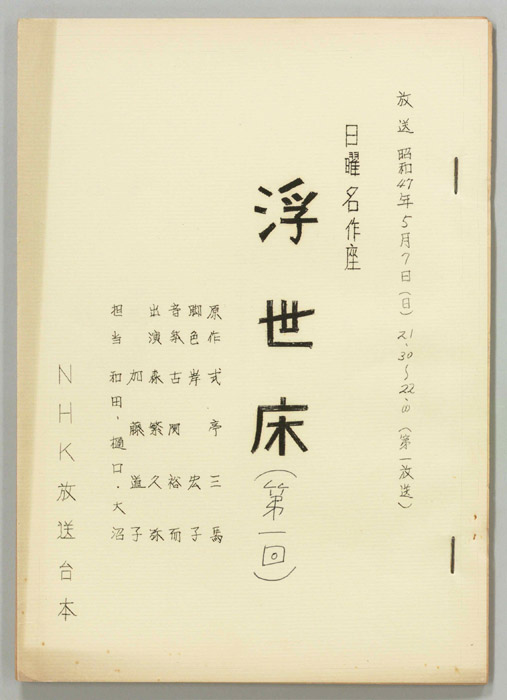 放送 昭和47年5月7日(日) 21.30~22.00 (第一放送)
日曜名作座
浮世床(第一回)
原作 式亭三馬
脚色 岸 宏子
音楽 古関裕而
出演 森繁久弥
加藤道子
担当 和田、樋口、大沼
NHK放送台本